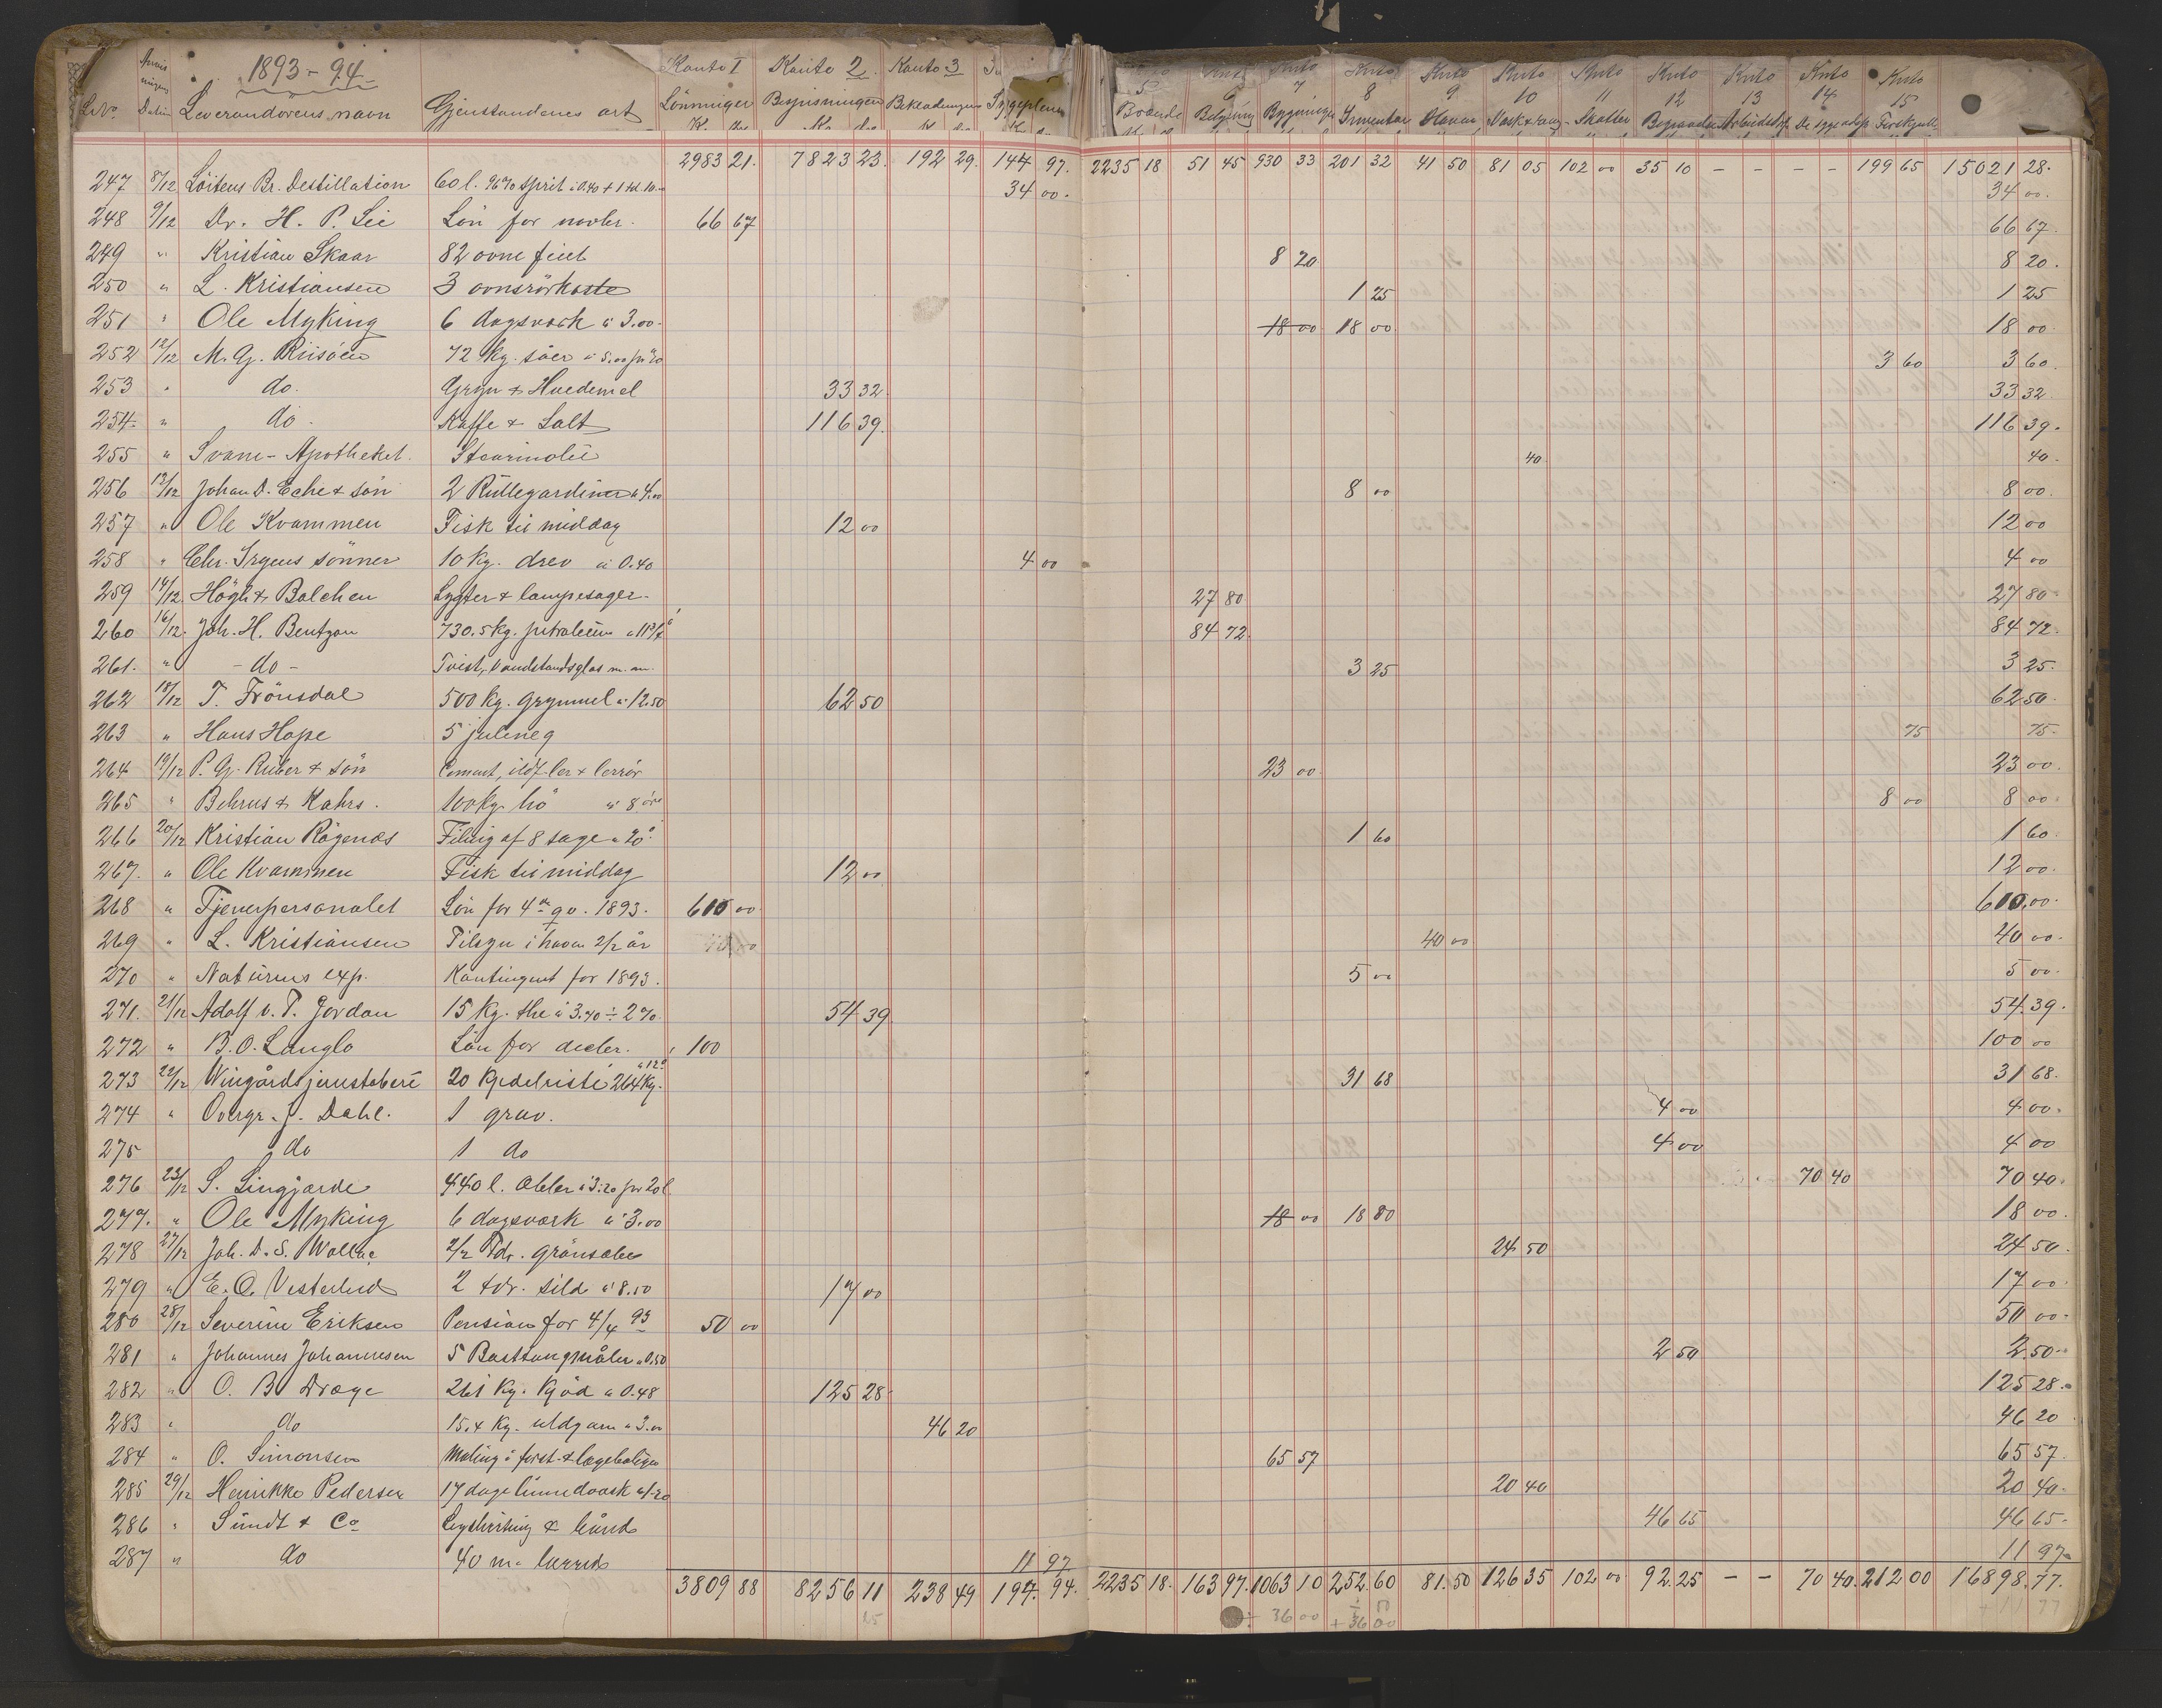 1893-94
Lno. Anvisningens Datum Leverandörens navn Gjenstandens art Konto 1 Lönninger Konto 2 Bespisningen Konto 3 Beklædningen Sygepleien 5 Brænde Konto 6 Belysning Konto 7 Bygninger Konto 8 Inventar Konto 9 Haven Konto 10 Vask & reng. Konto 11 Skatter Konto 12 Konto 13 Konto 14 Konto 15
2983 21. 7823 23. 192 29. 144 97. 2235 18 51 45 930 33 201 32 41 50 81 05 102 00 35 10 - - - - 199 65 15021 28.
247 8/12 Löitens Br. Destillation 60 l. 96% sprit à 0.40 + 1 td. 10.- 34 00. 34 00.
248 9/12 Dr. H. P. Lie Lön for novbr. 66 67 66 67.
249 " Kristian Skaar 82 ovne feiet 8 20 8 20.
250 " L. Kristiansen 3 ovnsrörkoste 1 25 1 25
251 " Ole Myking 6 dagsverk à 3.00. 18 00 18 00 18 00.
252 12/12 M. G. Riisöen 72 kg. såer à 5.00 pr % 3 60 3 60.
253 " do. Gryn & Hvedemel 33 32. 33 32
254. " do. Kaffe & Salt 116 39. 116 39.
255 " Svane-Apotheket. Stearinolie 40. 40.
256 13/12 Johan D. Eche & sön 2 Rullegardiner à 4.00 8 00 8 00.
257 " Ole Kvammen Fisk til middag 12 00 12 00
258 " Chr. Irgens sönner 10 kg. drev à 0.40 4 00 4 00
259 14/12. Högh & Balchen Lygter & lampesager. 27 80 27 80.
260 16/12. Joh. H. Bentzon 730.5 kg. petroleum 84 72. 84 72.
261. " - do - Tvist, vandstandsglas m.m. 3 25 3 25.
262 18/12 T. Frönsdal 500 kg. grynmel à 12.50 62 50 62 50.
263 " Hans Hope 5 juleneg 75 75.
264 19/12 P. G. Rieber & sön Cement, ildf. ler & lerrör 23 00. 23 00.
265 " Behrens & Kahrs. 100 kg. hö à 8 öre 8 00 8 00.
266 20/12 Kristian Rögenæs Filing af 8 sage à 20 1 60 1 60.
267. " Ole Kvammen Fisk til middag 12 00 12 00.
268 " Tjenerpersonalet Lön for 4de qv. 1893. 610 00. 610.00.
269 " L. Kristiansen Tilsyn i haven 2/2 år 40 00 40 00.
270 " Naturens exp. Kontingent for 1893. 5 00 5 00.
271. 21/12 Adolf v. T. Jordan 15 kg. the à 3.70 ÷ 2% 54 39 54.39.
272 " B. O. Langlo Lön for decbr. 100 100 00
273 22/12 Wingårds jernstöberi 20 Kjedelriste 264 kg. à 12 31 68 31 68.
274 " Overgr. J. Dahl. 1 grav. 4 00 4 00.
275 do 1 do 4 00 4 00
276 23/12 S. Lingjærde 440 l. Æbler à 3.20 pr 20 l. 70 40 70 40.
277. " Ole Myking 6 dagsværk à 3.00 18 00 18 00 18 00.
278 27/12 Joh. D. S. Wolthe 2/2 Tdr. grönsæbe 24 50 24 50.
279 " E. O. Vesterlid 2 tdr. sild à 8.50 17 00 17 00.
280 28/12 Severine Eriksen Pension for 4/4 93 50 00 50 00.
281 " Johannes Johannesen 5 Basttougmåler à 0.50 2 50 2.50.
282 " O. B. Dræge 261 kg. Kjöd à 0.48 125 28. 125 28.
283 " do 15.4 kg. uldgarn à 3.00 46 20 46 20
284 " O. Simonsen Maling i forst. & lægeboligen 65 57 65 57.
285 29/12 Henrikke Pedersen 17 dage linnedvask à 1.20 20 40 20 40.
286 " Sundt & Co Engelskskirting & bånd 46 65 46 65.
287 " do 40 m. lærred 11 97 11 97.
3809 88 8256 11 238 49 194. 94. 2235 18. 163 97. 1063 10 252 60 81.50 126 35 102 00 92.25 - - 70 40. 212 00 16898.77.
÷ 36 00 + 36 00